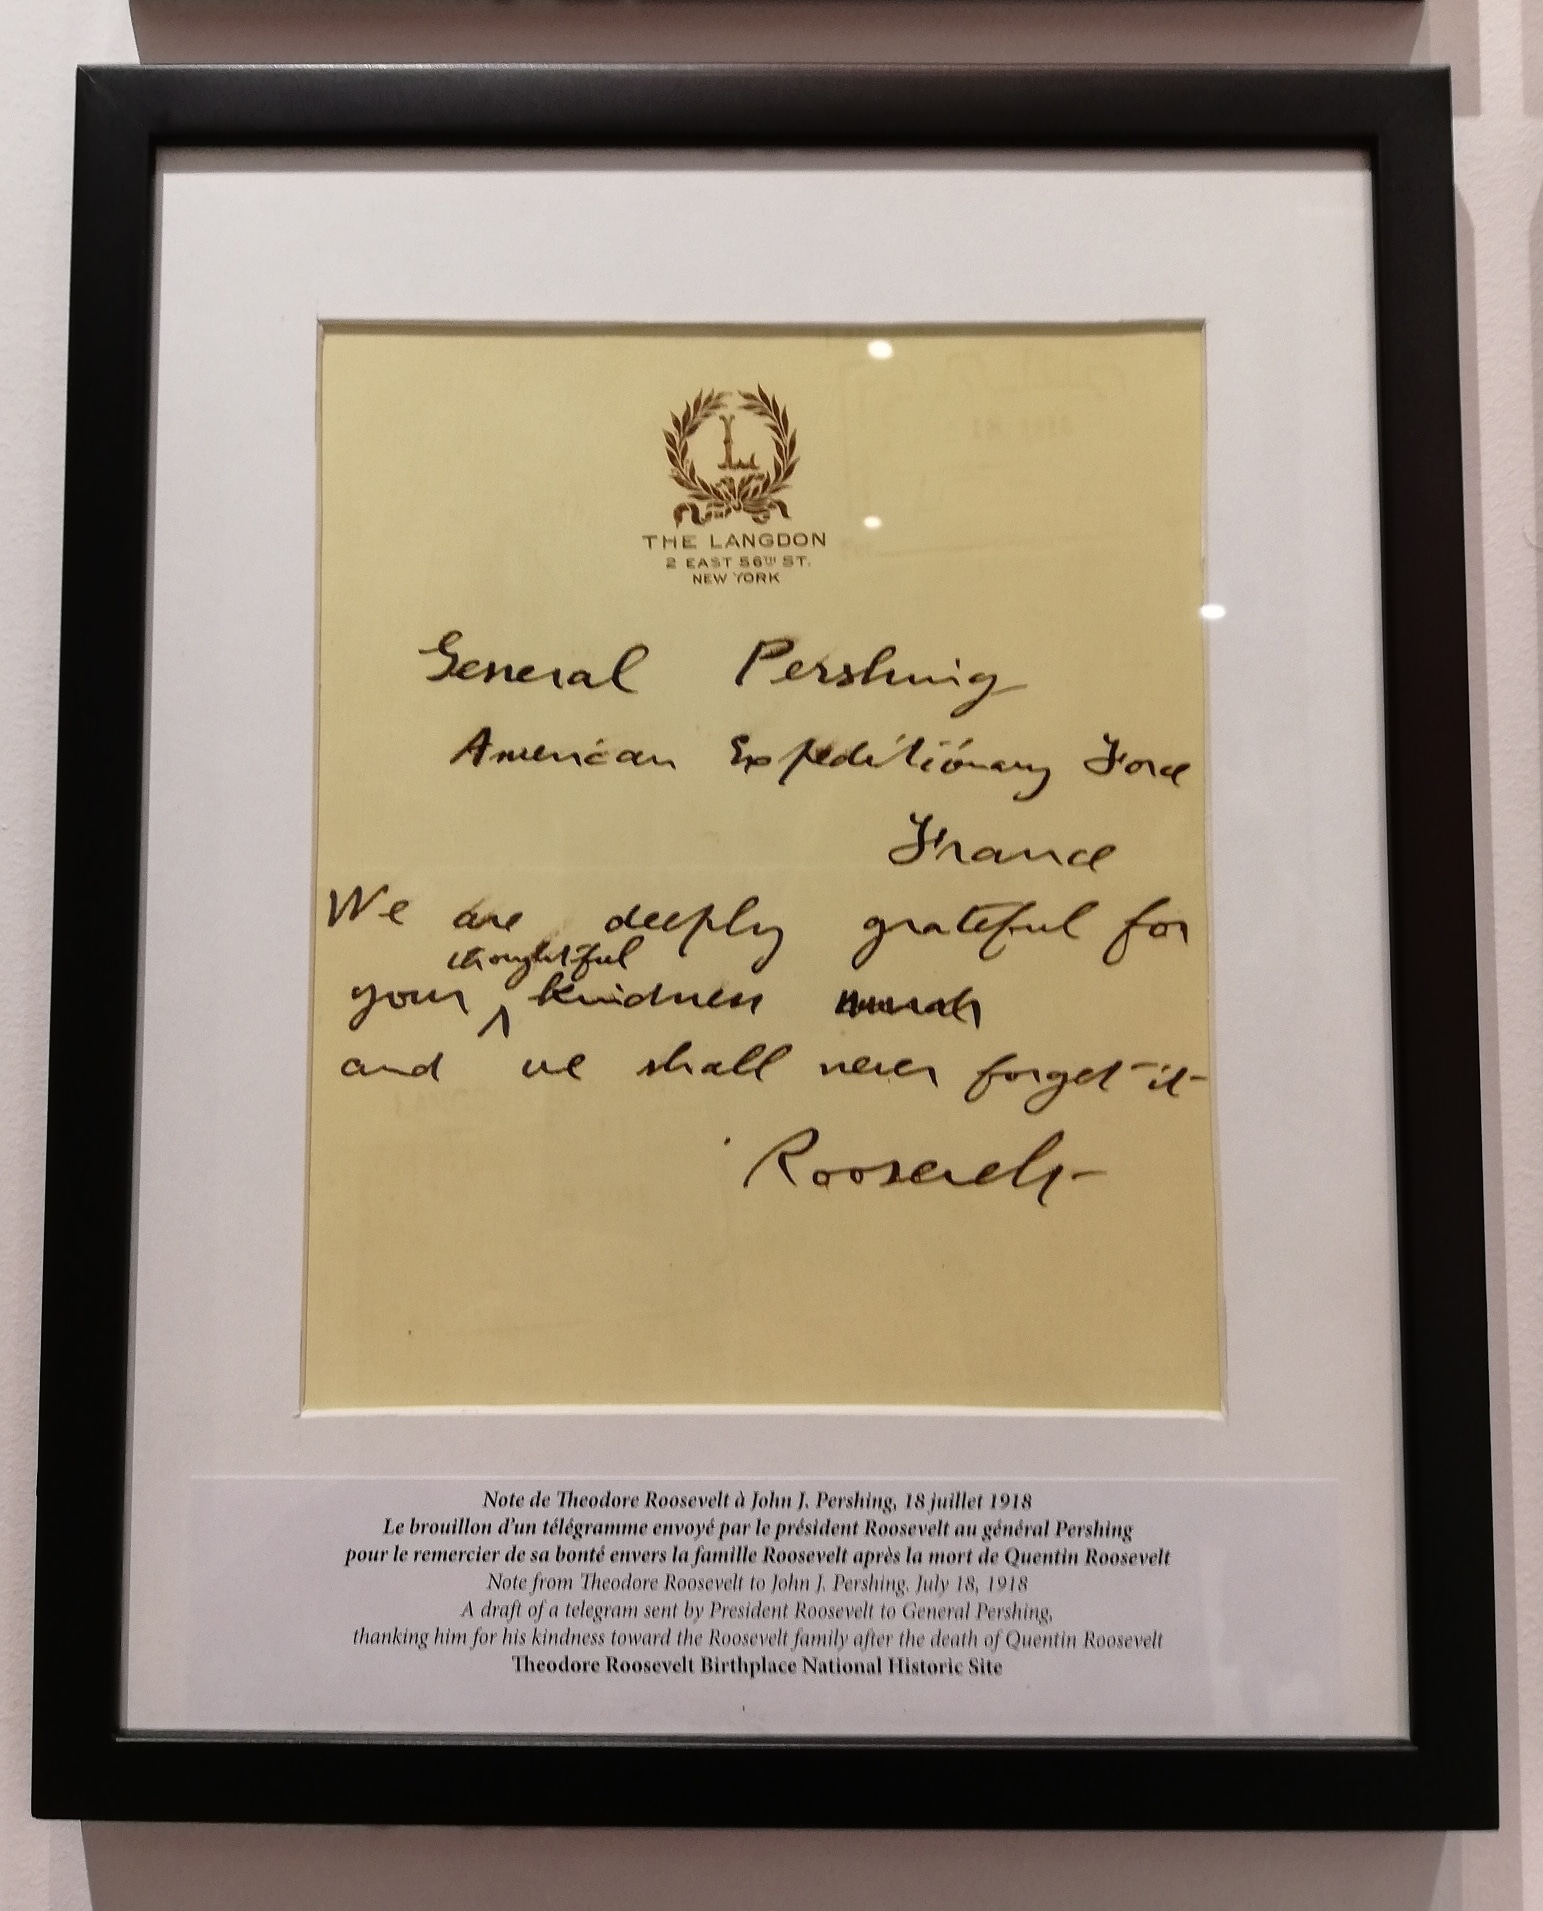 L
THE LANGDON
2 EAST 56TH ST.
NEW YORK
General Pershing
American Expeditionary Force
France
We are deeply grateful for
thoughtful
your ^ kindness
and we shall never forget it
Roosevelt
Note de Theodore Roosevelt à John J. Pershing, 18 juillet 1918
Le brouillon d'un télégramme envoyé par le président Roosevelt au général Pershing
pour le remercier de sa bonté envers la famille Roosevelt après la mort de Quentin Roosevelt
Note from Theodore Roosevelt to John J. Pershing. July 18, 1918
A draft of a telegram sent by President Roosevelt to General Pershing,
thanking him for his kindness toward the Roosevelt family after the death of Quentin Roosevelt
Theodore Roosevelt Birthplace National Historic Site